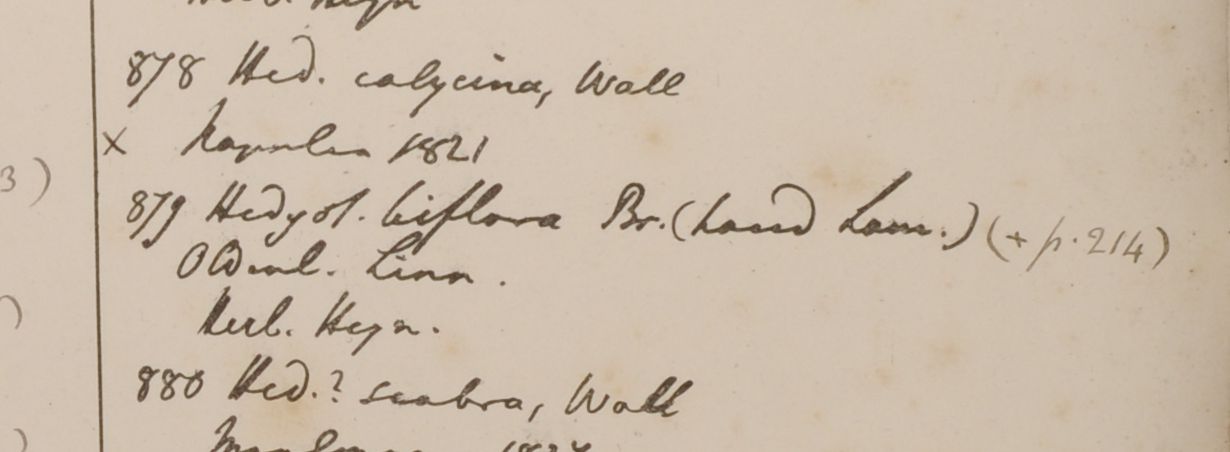 Herb. Heyn
878 Hed. calycina, Wall
x Napalia 1821
3)
879 Hedyot. biflora Br. (haud Lam.) (+ p. 214)
Oldenl. Linn.
Herb. Heyn.
)
880 Hed.? scabra, Wall
)